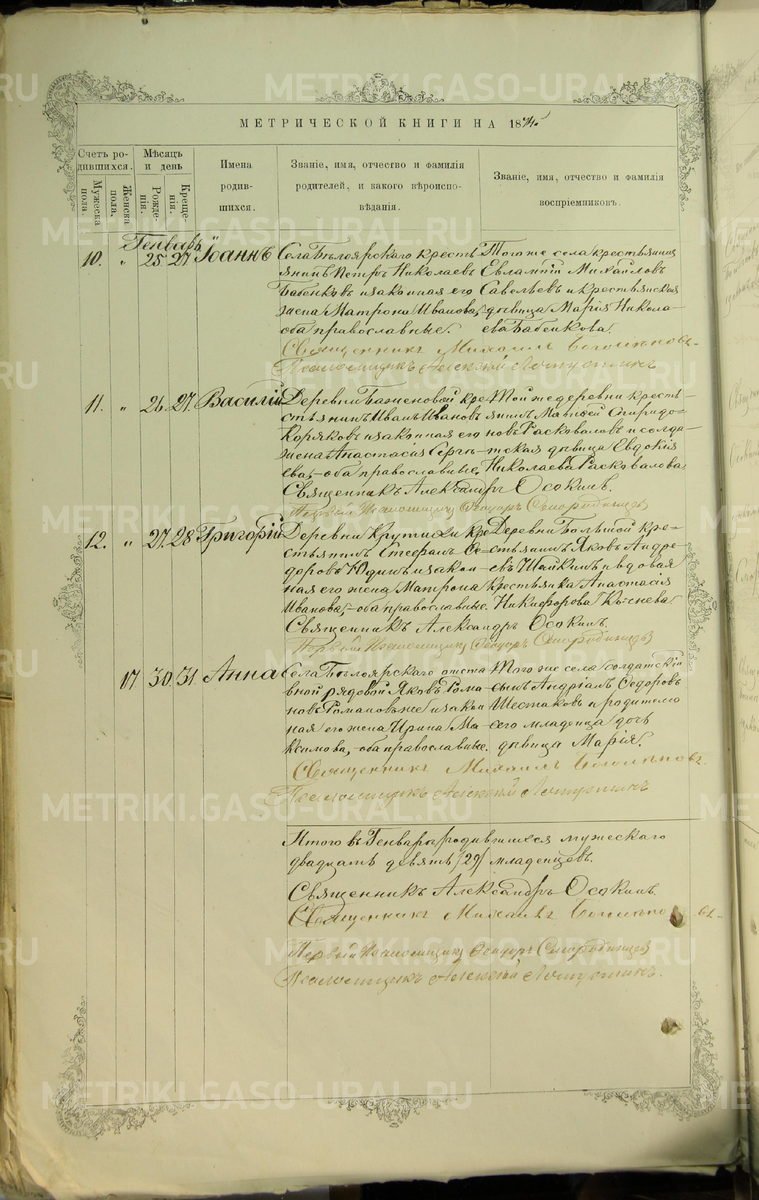 МЕТРИЧЕСКОЙ КНИГИ НА 1874.
Счетъ родившихся.
Мужеска пола.
Женска пола.
Мѣсяцъ и день
Рожденія.
Крещенія.
Имена родившихся.
Званіе, имя, отчество и фамилія родителей, и какого вѣроисповѣданія.
Званіе, имя, отчество и фамилія воспріемниковъ.
Генварь
10. " 25. 27. Іоаннъ
Села Бѣлоярскаго кресть
янинъ Петръ Николаевъ
Бабенковъ и законная его
жена Матрона Иванова,
оба православные.
Того же села крестьянинъ
Евлампій Михайловъ
Савельевъ и крестьянская
дѣвица Марія Никола-
ева Бабенкова.
Священникъ Михаилъ
Псаломщикъ Алексѣй
11. " 26. 27. Василій
Деревни Баженовой кре-
стьянинъ Иванъ Ивановъ
Коряковъ и законная его
жена Анастасія Сергѣ-
ева, оба православные.
Той же деревни кресть-
янинъ Матѳей Спиридо-
новъ Расковаловъ и солда-
тская дѣвица Евдокія
Николаева Расковалова.
Священникъ Александръ Осокинъ.
Первый Псаломщикъ Ѳеодоръ Смородинцевъ
12. " 27. 28. Григорій
Деревни Крутихи кре-
стьянинъ Стефанъ Ѳе-
доровъ Юдинъ и закон-
ная его жена Матрона
Иванова, оба православные.
Деревни Большой кре-
стьянинъ Яковъ Андре-
евъ и вдовая
крестьянка Анастасія
Никифорова
Священникъ Александръ Осокинъ.
Первый Псаломщикъ Ѳеодоръ Смородинцевъ
17 30. 31 Анна
Села Бѣлоярскаго отста
вной рядовой Яковъ Рома-
новъ Романовъ же и закон
ная его жена Ирина Ма-
ксимова, оба православные.
Того же села солдатскій
сынъ Андріанъ Ѳедоровъ
Шестаковъ и родителя
сего младенца дочь
дѣвица Марія.
Священникъ Михаилъ
Псаломщикъ Алексѣй
Итого въ Генварѣ родившихся мужескаго
двадцать девять /29/ младенцевъ.
Священникъ Александръ Осокинъ.
Священникъ Михаилъ
Первый Псаломщикъ Ѳеодоръ Смородинцевъ
Псаломщикъ Алексѣй
METRIKI.GASO-URAL.RU